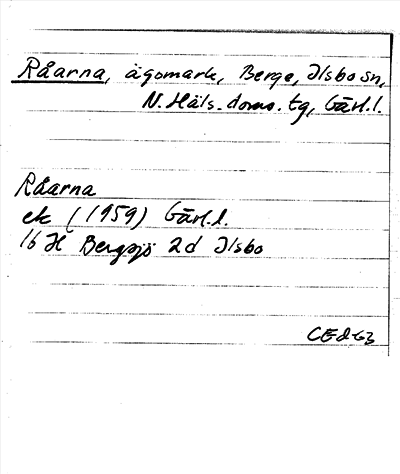 Råarna, ägomark, Berge, Ilsbo sn,
N. Häls. doms. tg, Gävl. l.
Råarna
ek (1959) Gävl. l.
16 H Bergsjö 2d Ilsbo
CEd63